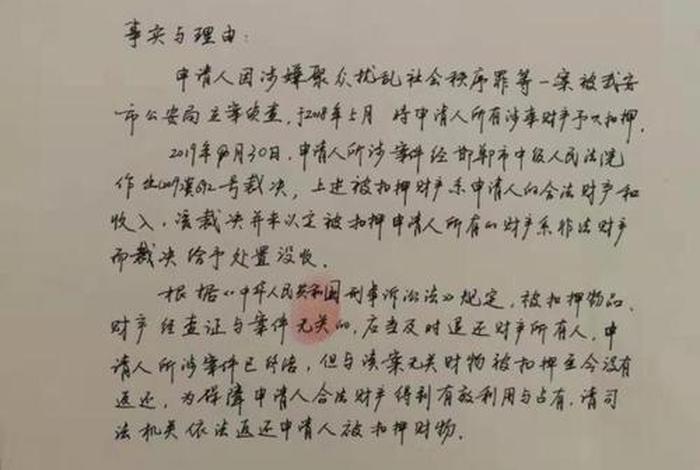 事实与理由：
申请人因涉嫌聚众扰乱社会秩序罪等一案被武安
市公安局立案侦查，于2018年5月 将申请人所有涉案财产予以扣押。
2019年 月30日，申请人所涉案件经邯郸市中级人民法院
作出 号裁决，上述被扣押财产系申请人的合法财产和
收入，该裁决并未认定被扣押申请人所有的财产系非法财产
而裁决给予处置没收。
根据《中华人民共和国刑事诉讼法》规定，被扣押物品、
财产经查证与案件无关的，应当及时退还财产所有人，申
请人所涉案件已终结，但与该案无关财物被扣押至今没有
返还，为保障申请人合法财产得到有效利用与占有，请司
法机关依法返还申请人被扣押财物。